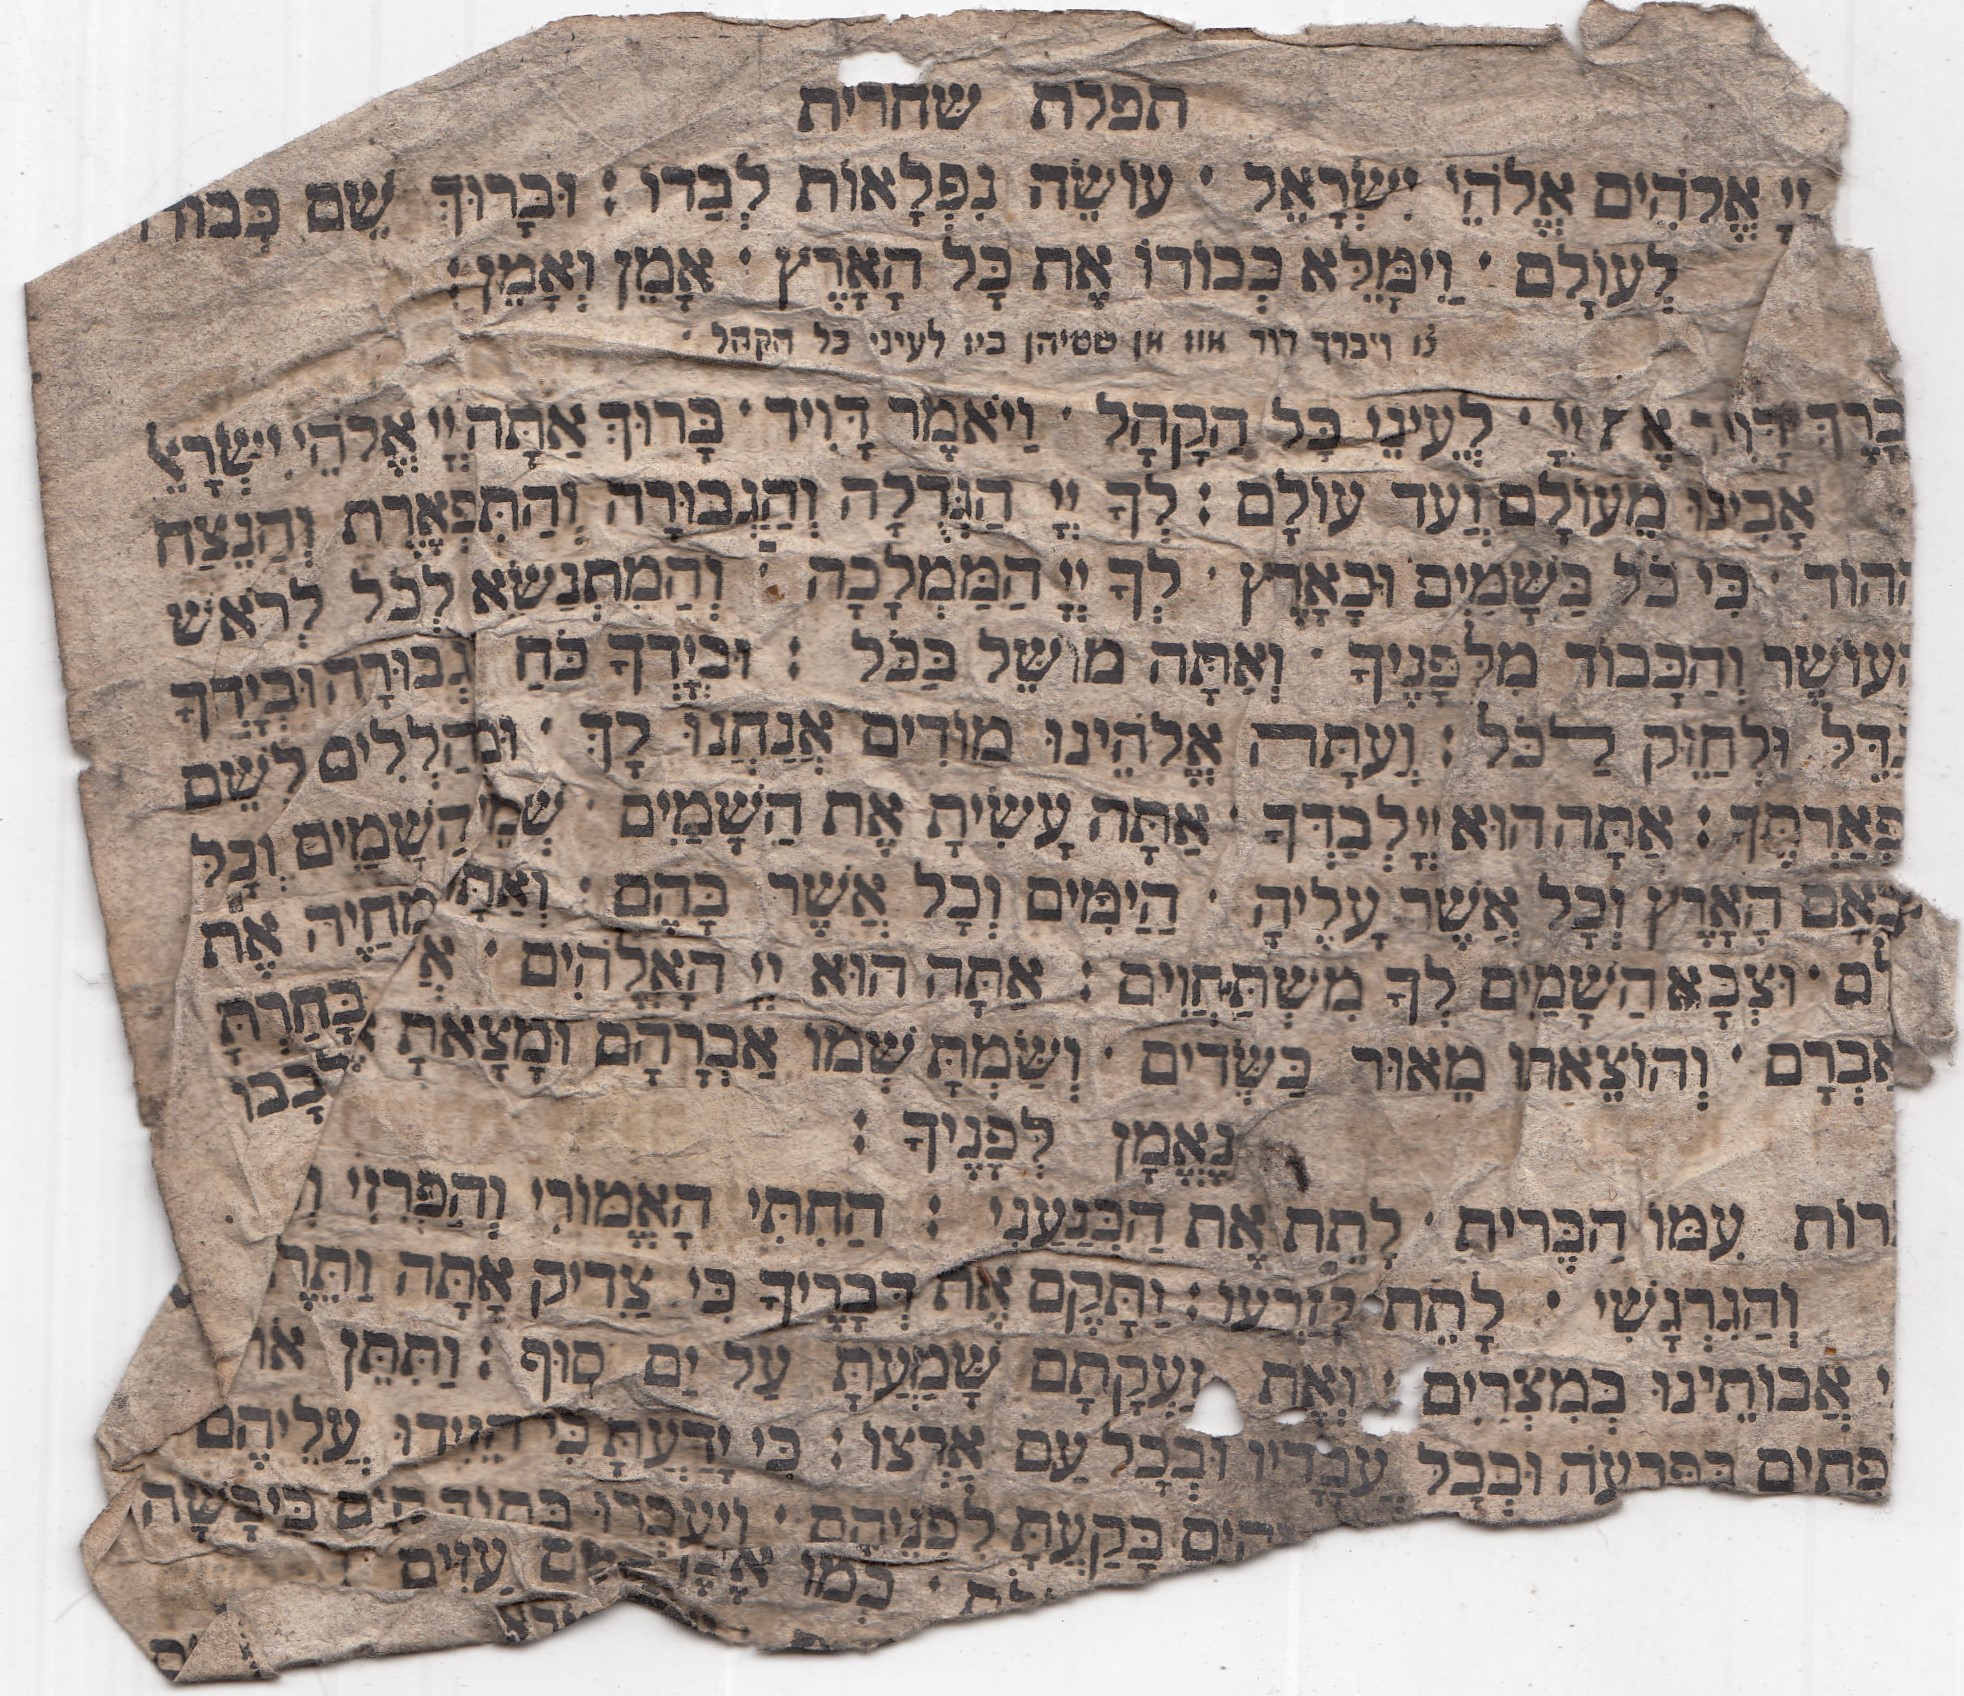 תפלת שחרית
יְיָ אֱלֹהִים אֱלֹהֵי יִשְׂרָאֵל · עוֹשֵׂה נִפְלָאוֹת לְבַדּוֹ : וּבָרוּךְ שֵׁם כְּבוֹדוֹ
לְעוֹלָם · וְיִמָּלֵא כְבוֹדוֹ אֶת כָּל הָאָרֶץ · אָמֵן וְאָמֵן :
צו ויברך דוד אונ אן שטיהן ביז לעיני כל הקהל ·
בָרֶךְ דָּוִיד אֶת יְיָ · לְעֵינֵי כָּל הַקָּהָל · וַיֹּאמֶר דָּוִיד · בָּרוּךְ אַתָּה יְיָ אֱלֹהֵי יִשְׂרָאֵל
אָבִינוּ מֵעוֹלָם וְעַד עוֹלָם : לְךָ יְיָ הַגְּדֻלָּה וְהַגְּבוּרָה וְהַתִּפְאֶרֶת וְהַנֵּצַח
הַהוֹד · כִּי כֹל בַּשָּׁמַיִם וּבָאָרֶץ · לְךָ יְיָ הַמַּמְלָכָה · וְהַמִּתְנַשֵּׂא לְכֹל לְרֹאשׁ
הָעוֹשֶׁר וְהַכָּבוֹד מִלְּפָנֶיךָ · וְאַתָּה מוֹשֵׁל בַּכֹּל : וּבְיָדְךָ כֹּחַ גְּבוּרָה וּבְיָדְךָ
גַדֵּל וּלְחַזֵּק לַכֹּל : וְעַתָּה אֱלֹהֵינוּ מוֹדִים אֲנַחְנוּ לָךְ · וּמְהַלְלִים לְשֵׁם
פְאַרְתֶּךָ : אַתָּה הוּא יְיָ לְבַדֶּךָ · אַתָּה עָשִׂיתָ אֶת הַשָּׁמַיִם · שְׁמֵי הַשָּׁמַיִם וְכָל
צְבָאָם הָאָרֶץ וְכָל אֲשֶׁר עָלֶיהָ · הַיַּמִּים וְכָל אֲשֶׁר בָּהֶם · וְאַתָּ מְחַיֶּה אֶת
לָם · וּצְבָא הַשָּׁמַיִם לְךָ מִשְׁתַּחֲוִים : אַתָּה הוּא יְיָ הָאֱלֹהִים · אֲ בָּחַרְתָּ
אַבְרָם · וְהוֹצֵאתוֹ מֵאוּר כַּשְׂדִּים · וְשַׂמְתָּ שְּׁמוֹ אַבְרָהָם וּמָצָאתָ לְבָבוֹ
נֶאֱמָן לְפָנֶיךָ :
רוֹת עִמּוֹ הַבְּרִית · לָתֵת אֶת הַכְּנַעֲנִי : הַחִתִּי הָאֱמוֹרִי וְהַפְּרִזִּי וְ
וְהַגִּרְגָּשִׁי · לָתֵת לְזַרְעוֹ : וַתָּקֶם אֶת דְּבָרֶיךָ כִּי צַדִּיק אָתָּה וַתֵּרֶ
י אֲבוֹתֵינוּ בְּמִצְרַיִם · וְאֶת זַעֲקָתָם שָׁמַעְתָּ עַל יַם סוּף : וַתִּתֵּן או
פְתִים בְּפַרְעֹה וּבְכָל עֲבָדָיו וּבְכָל עַם אַרְצוֹ : כִּי יָדַעְתָּ כִּי הֵזִידוּ עֲלֵיהֶם
הַיָּם בָּקַעְתָּ לִפְנֵיהֶם · וַיַּעַבְרוּ בְתוֹךְ הַיָּם בַּיַּבָּשָׁה
כְּמוֹ עַזִּים